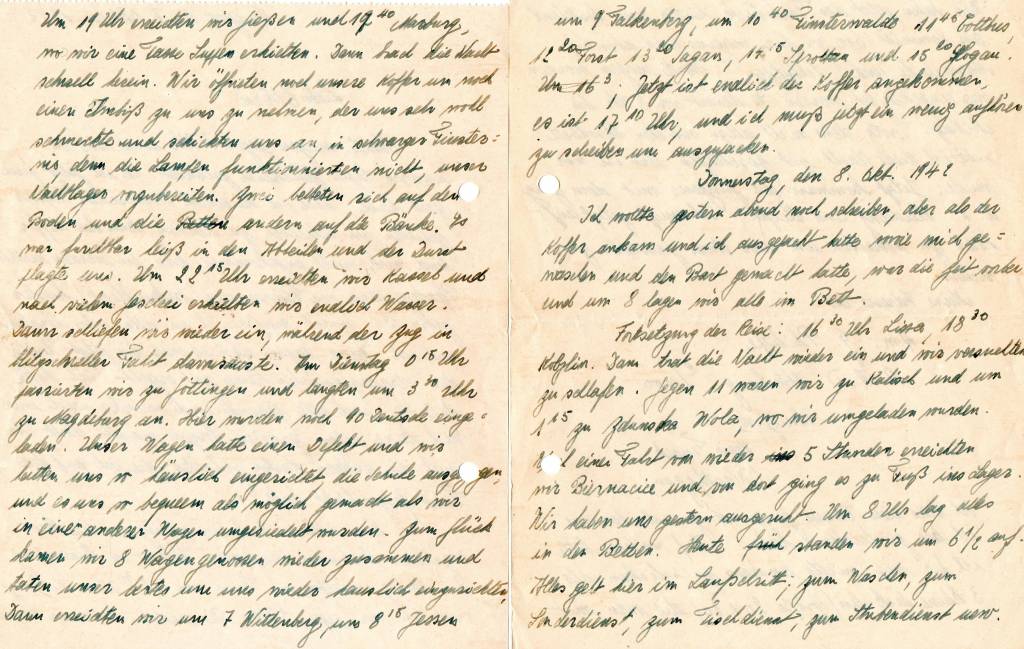 Um 19 Uhr erreichten wir Gießen und 19 40 Marburg,
wo wir eine Tasse Suppe erhielten. Dann brach die Nacht
schnell herein. Wir öffneten noch unsere Koffer um noch
einen Imbiß zu uns zu nehmen, der uns sehr wohl
schmeckte und schickten uns an, in schwarzer Finster-
nis, denn die Lampen funktionnierten nicht, unser
Nachtlager vorzubereiten. Zwei betteten sich auf den
Boden und die andern auf die Bänke. Es
war furchtbar heiß in den Abteilen und der Durst
plagte uns. Um 22 15 Uhr erreichten wir Kassel und
nach vielem Geschrei erhielten wir endlich Wasser.
Dann schliefen wir wieder ein, während der Zug in
blitzschneller Fahrt davonsauste. Am Dienstag 0 15 Uhr
passierten wir zu Göttingen und langten um 3 30 Uhr
zu Magdeburg an. Hier wurden noch 40 Deutsche einge-
laden. Unser Wagen hatte einen Defekt und wir
hatten uns so häuslich eingerichtet die Schuhe ausgezogen,
und es uns so bequem als möglich gemacht als wir
in einen anderen Wagen umgesiedelt wurden. Zum Glück
kamen wir 8 Wagengenossen wieder zusammen und
taten unser bestes um uns wieder häuslich einzurichten.
Dann erreichten wir um 7 Wittenberg, um 8 15 Jessen
um 9 Falkenberg, um 10 40 Finsterwalde 11 45 Cottbus,
12 20 Forst 13 20 Sagan, 14 15 Sprottau und 15 20 Glogau.
Um 16 3; Jetzt ist endlich der Koffer angekommen,
es ist 17 10 Uhr, und ich muß jetzt ein wenig aufhören
zu schreiben um auszupacken.
Donnerstag, den 8. Okt. 1942
Ich wollte gestern abend noch schreiben, aber als der
Koffer ankam und ich ausgepackt hatte sowie mich ge-
waschen und den Bart gemacht hatte, war die Zeit vorbei
und um 8 lagen wir alle im Bett.
Fortsetzung der Reise: 16 30 Uhr Lissa, 18 30
Kotzlin. Dann trat die Nacht wieder ein und wir versuchten
zu schlafen. Gegen 11 waren wir zu Kalisch und um
1 15 zu Zdunska Wola, wo wir umgeladen wurden.
einer Fahrt von wieder 5 Stunden erreichten
wir Biernacice und von dort ging es zu Fuß ins Lager.
Wir haben uns gestern ausgeruht. Um 8 Uhr lag alles
in den Betten. Heute früh standen wir um 6 1/2 auf.
Alles geht hier im Laufschritt; zum Waschen, zum
Sonderdienst, zum Tischdienst, zum Stubendienst usw.